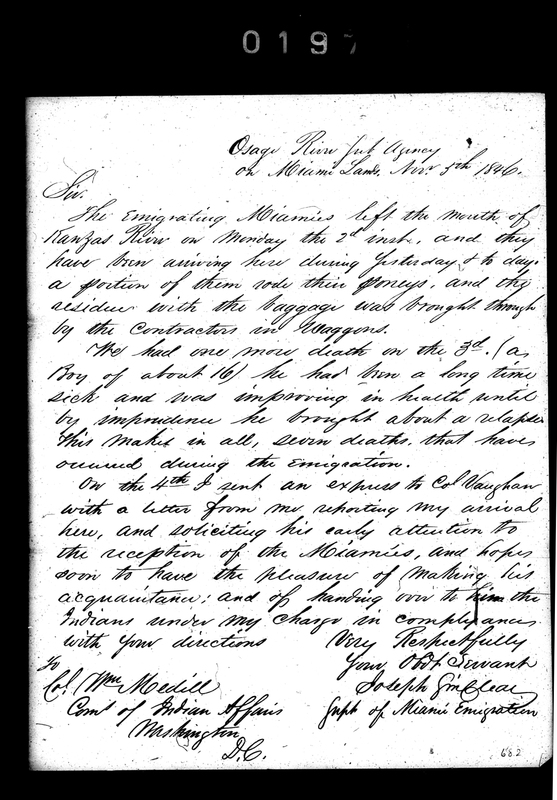 0197
Osage River Sub Agency
on Miami Lands, Novr 5th 1846.
Sir.
The Emigrating Miamies left the mouth of
Kanzas River on Monday the 2d inst., and they
have been arriving here during yesterday & to day.
a portion of them rode their poneys, and the
residue with the baggage was brought through
by the contractors in Waggons.
We had one more death on the 3d. (a
Boy of about 16) he had been a long time
sick and was improving in health until
by imprudence he brought about a relapse
This makes in all, seven deaths that have
occured during the Emigration.
On the 4th I sent an express to Col Vaughan
with a letter from me reporting my arrival
here, and soliciting his early attention to
the reception of the Miamies, and hope
soon to have the pleasure of making his
acquaintance; and of handing over to him the
Indians under my charge in compliance
with your directions
Very Respectfully
Your Obdt Servant
Joseph Sinclear
Supt of Miami Emigration
To
Col. Wm Medill
Comr of Indian Affairs
Washington
D.C.
682